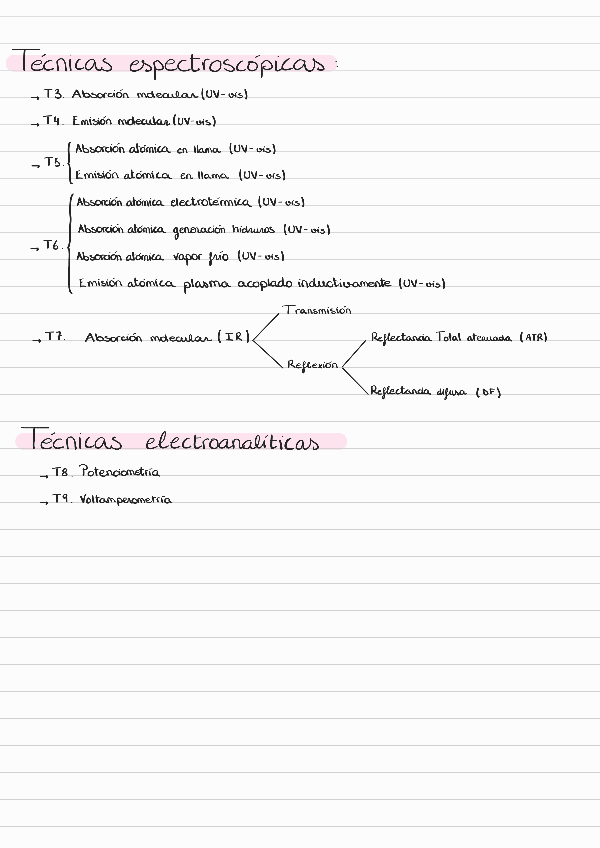 Técnicas espectroscópicas:
→ T3. Absorción molecular (UV-vis)
→ T4. Emisión molecular (UV-vis)
→ T5. Absorción atómica en llama (UV-vis)
Emisión atómica en llama (UV-vis)
→ T6. Absorción atómica electrotérmica (UV-vis)
Absorción atómica generación hidruros (UV-vis)
Absorción atómica vapor frío (UV-vis)
Emisión atómica plasma acoplado inductivamente (UV-vis)
→ T7. Absorción molecular (IR)
Transmisión
Reflexión
Reflectancia Total atenuada (ATR)
Reflectancia difusa (DF)
Técnicas electroanalíticas
→ T8. Potenciometría
→ T9. Voltamperometría